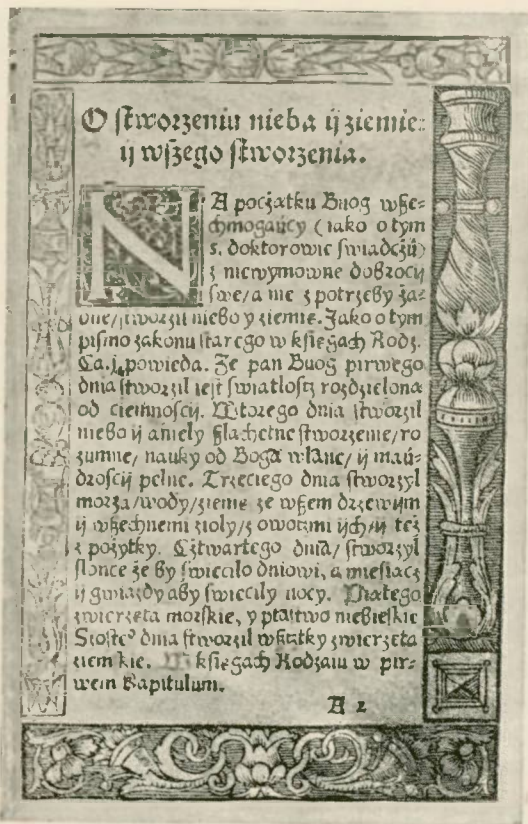 O stworzeniu nieba ij ziemie:
ij wszego stworzenia.
NA początku Buog wsze=
chmogaúcy (iako o tym
s. doktorowie swiadczú)
z niewymowne dobrocij
swe/a nie z potrzeby ża=
dne/stworzil niebo y ziemie. Jako o tym
pismo zakonu starego w księgach Rodz.
Ca.j. powieda. Ze pan Buog pirwego
dnia stworzil iest swiatlostz rozdzielona
od ciemnoscij. Wtorego dnia stworzil
niebo ij aniely szlachetne stworzenie/ro
zumne/ nauky od Boga wlane/ ij maú=
droscij pelne. Trzeciego dnia stworzyl
morza/wody/ziemie ze wszem drzewijm
ij wszechnemi zioly/z owotzmi ijch/ij też
z pożytky. Cztwartego dnia/ stworzyl
slonce że by swiecilo dniowi, a miesiacz
ij gwiazdy aby swiecily nocy. Piatego
zwierzeta morskie, y ptastwo niebieskie
dnia stworzil wszitky zwierzeta
ziemskie. W księgach Rodzaiu w pir=
wem Kapitulum.
A 2